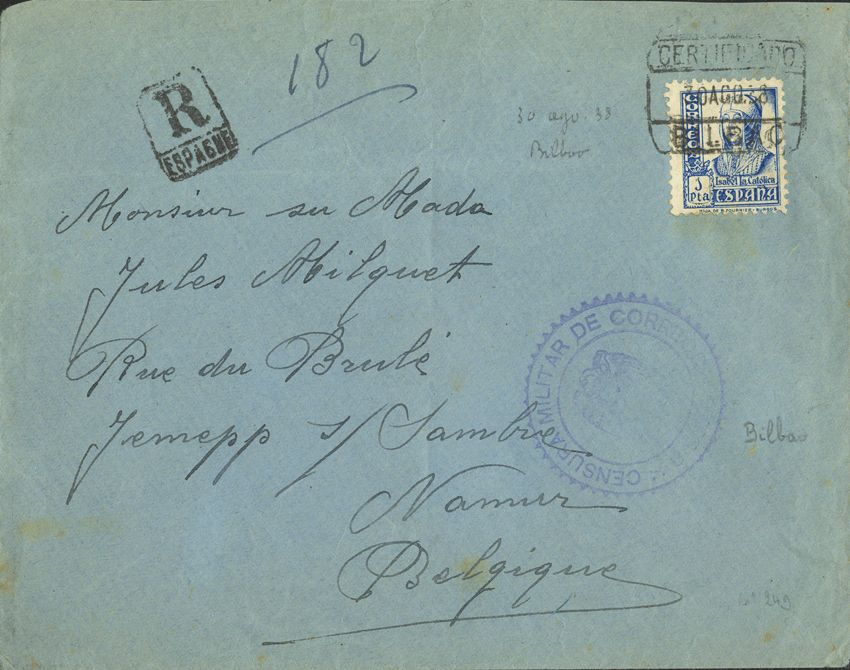 182
R
ESPAGNE
CERTIFICADO
30 AGO. 38
BILBAO
CORREOS
1 Pta
Isabel la Católica
ESPAÑA
HIJA DE B. FOURNIER - BURGOS
30 ago. 38
Bilbao
Monsiur su Mada
Jules Milquet
Rue du Brulé
Jemepp s/ Sambre
Namur
Belgique
CENSURA MILITAR DE CORREOS
Bilbao
249